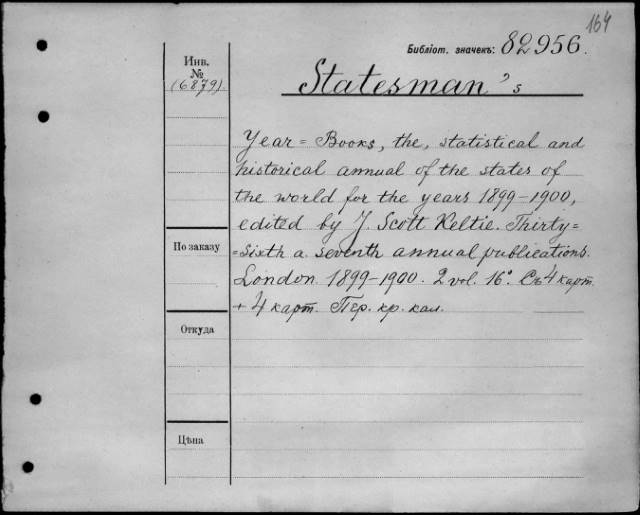 164
Библіот. значекъ: 82956.
Инв.
№
(6879).
Statesman's
Year=Books, the, statistical and
historical annual of the states of
the world for the years 1899-1900,
edited by J. Scott Keltie. Thirty=
По заказу
=sixth a. seventh annual publications.
London. 1899-1900. 2 vol. 16°. Съ 4 карт.
+ 4 карт. Пер. кр. кал.
Откуда
Цѣна